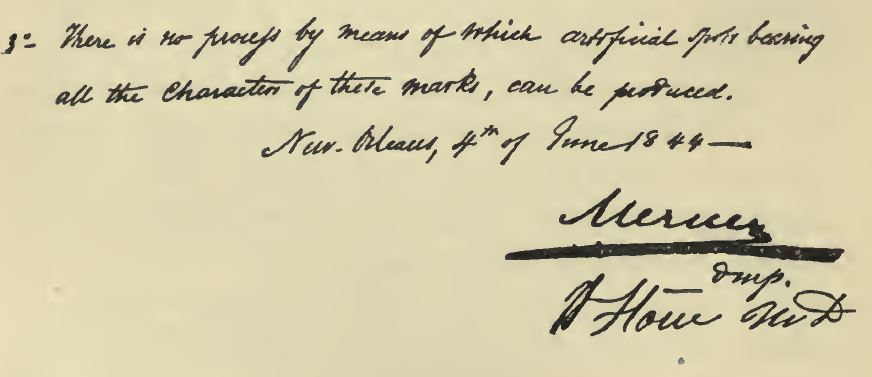 3o- There is no process by means of which artificial spots bearing
all the Characters of these marks, can be produced.
New-Orleans, 4th of June 1844—
Mercier
dmp.
W Stone MD